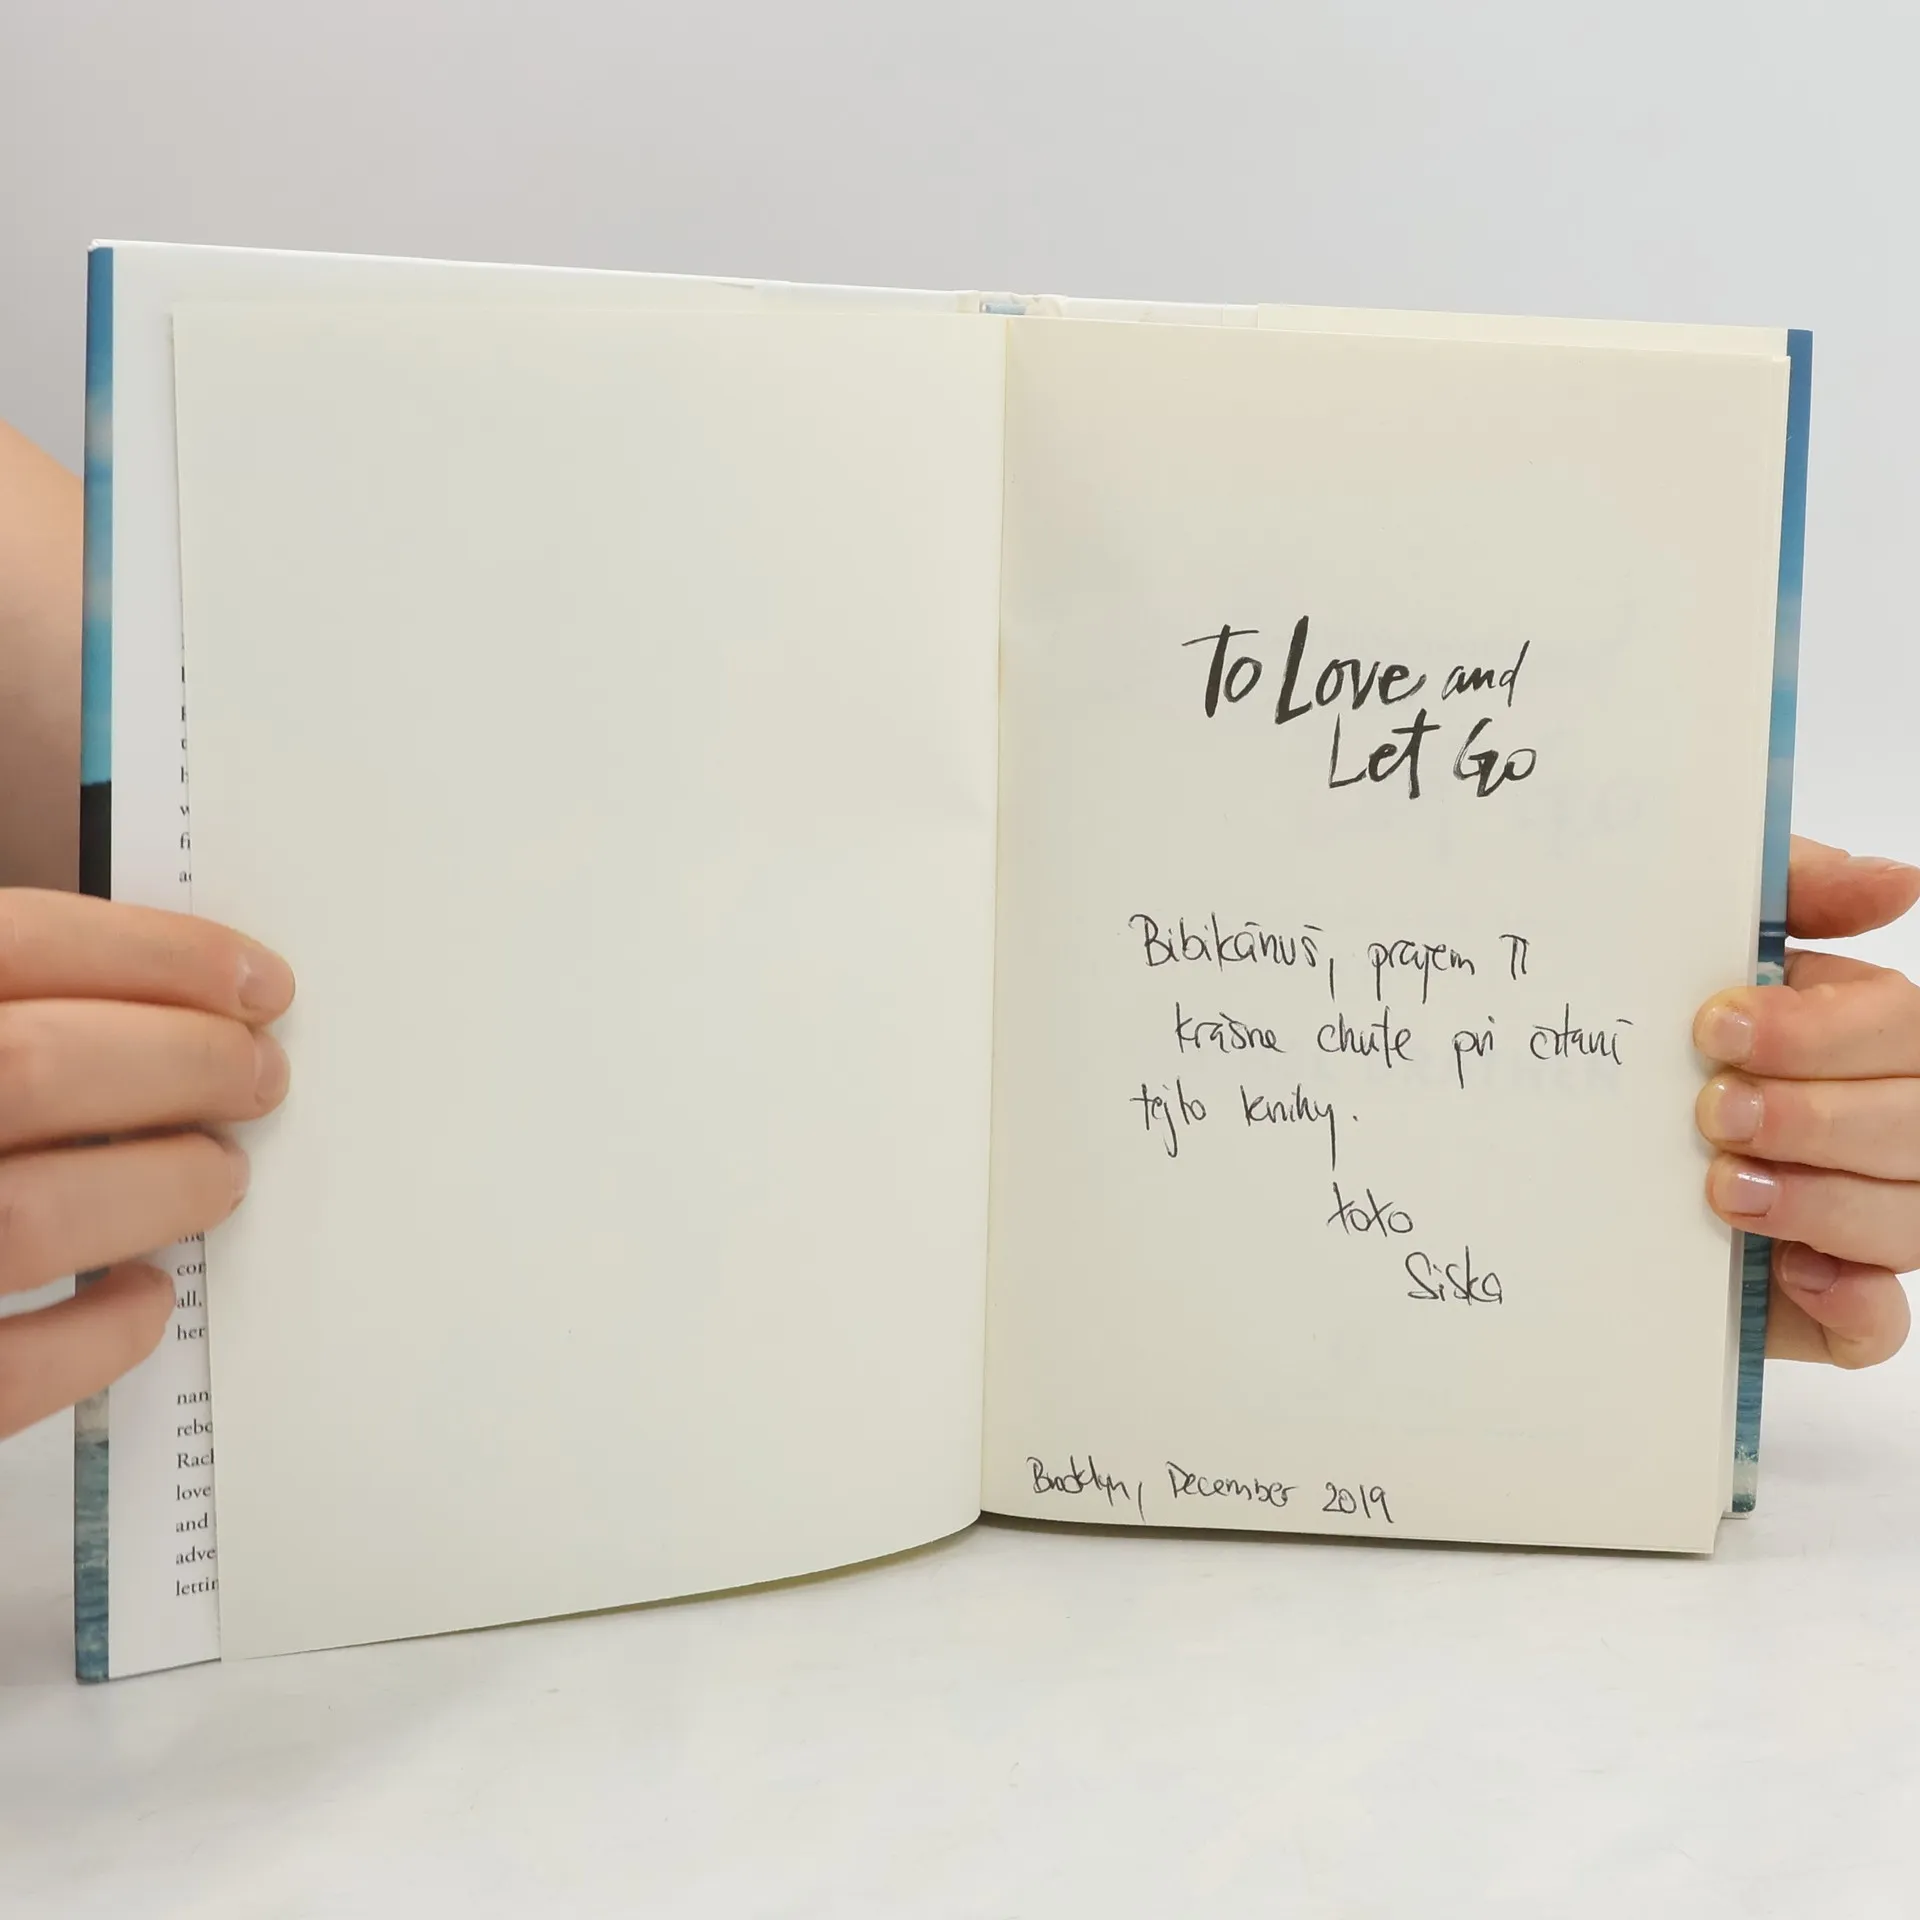 fi
con
all,
her
nan
rebo
Rach
love
and
adve
lettin
To Love and
Let Go
Bibikánuš, prajem Ti
krásne chvíle pri čítaní
tejto knihy.
xoxo
Siska
Brooklyn, December 2019